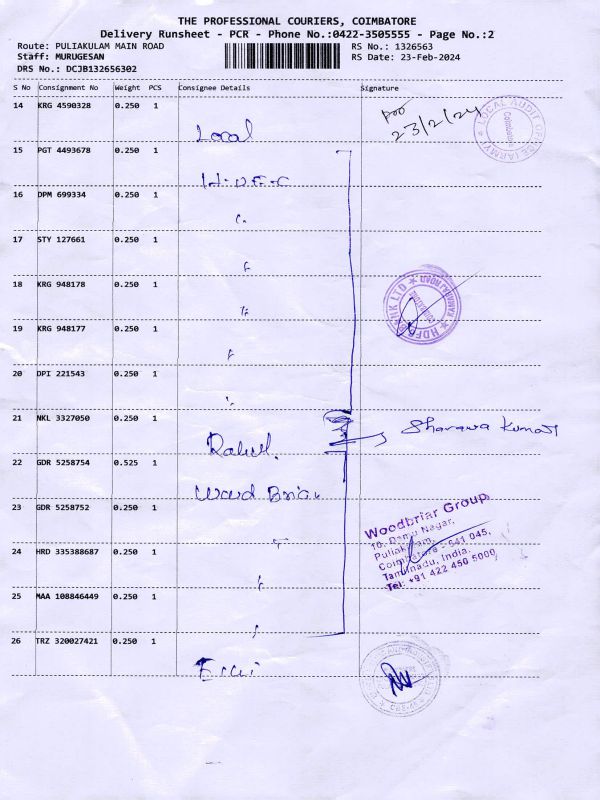 THE PROFESSIONAL COURIERS, COIMBATORE
Delivery Runsheet - PCR - Phone No.:0422-3505555 - Page No.:2
Route: PULIAKULAM MAIN ROAD
RS No.: 1326563
Staff: MURUGESAN
RS Date: 23-Feb-2024
DRS No.: DCJB132656302
S No Consignment No Weight PCS Consignee Details Signature
14 KRG 4590328 0.250 1
23/2/24
LOCAL AUDIT (ARMY) Coimbatore
Local
15 PGT 4493678 0.250 1
H.D.F.C
16 DPM 699334 0.250 1
17 STY 127661 0.250 1
18 KRG 948178 0.250 1
HDFC BANK LTD
19 KRG 948177 0.250 1
20 DPI 221543 0.250 1
21 NKL 3327050 0.250 1
Sharawa Kumar
Rahul.
22 GDR 5258754 0.525 1
Wood Briar
23 GDR 5258752 0.250 1
Woodbriar Group
10, Damu Nagar,
Puliakulam,
Coimbatore - 641 045,
Tamilnadu, India.
Tel: +91 422 450 5000
24 HRD 335388687 0.250 1
25 MAA 108846449 0.250 1
26 TRZ 320027421 0.250 1